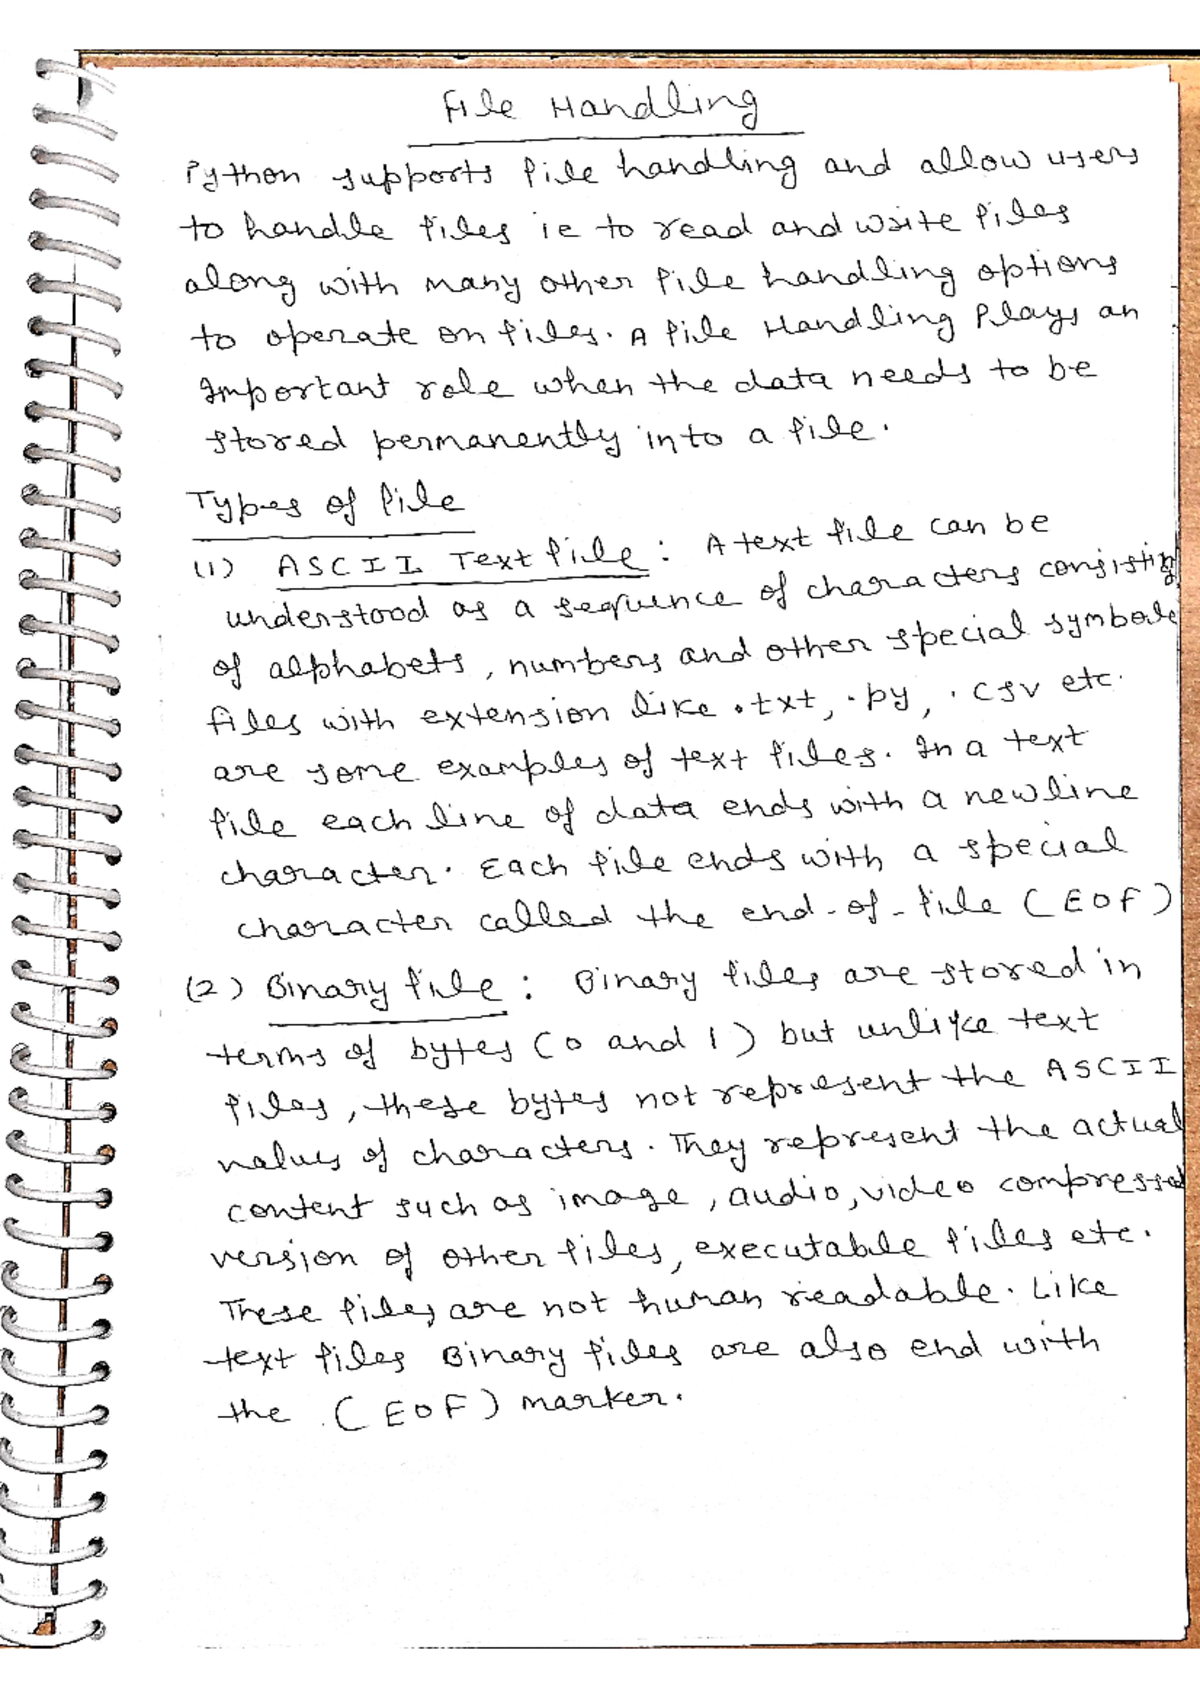 File Handling
Python supports file handling and allow users
to handle files ie to read and write files
along with many other file handling options
to operate on files. A file Handling Plays an
Important role when the data needs to be
stored permanently into a file.
Types of file
(1) ASCII Text file : A text file can be
understood as a sequence of characters consisting
of alphabets, numbers and other special symbols
files with extension like .txt, .py, .csv etc.
are some examples of text files. In a text
file each line of data ends with a newline
character. Each file ends with a special
character called the end-of-file (EOF)
(2) Binary file : Binary files are stored in
terms of bytes (0 and 1) but unlike text
files, these bytes not represent the ASCII
values of characters. They represent the actual
content such as image, audio, video compressed
version of other files, executable files etc.
These files are not human readable. Like
text files Binary files are also end with
the (EOF) marker.